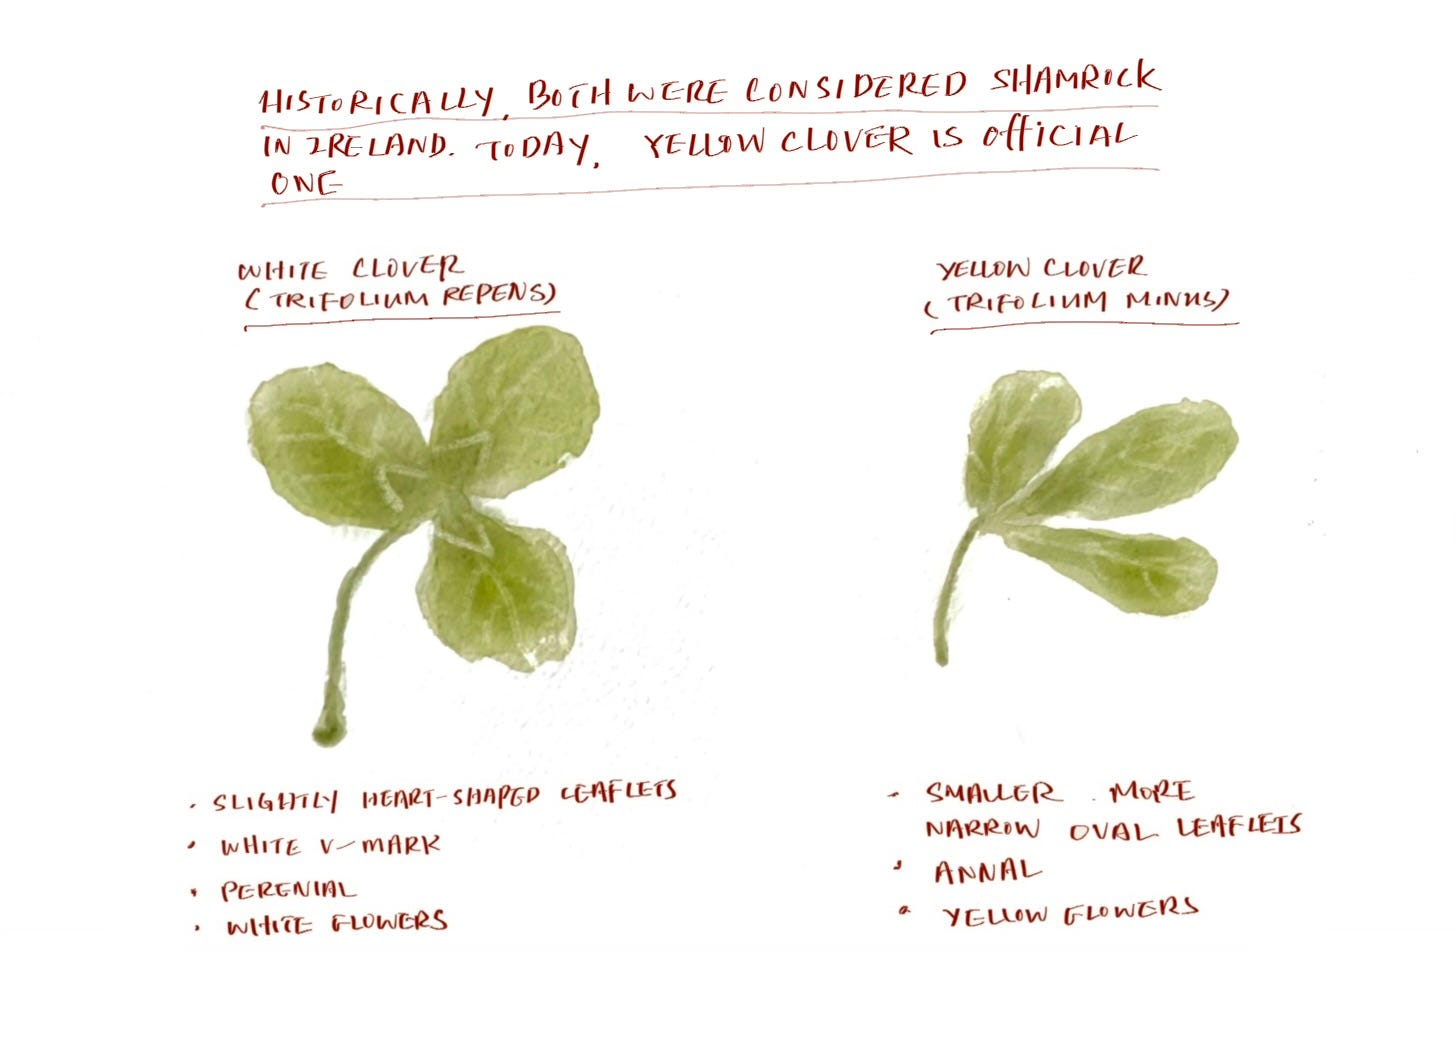 HISTORICALLY, BOTH WERE CONSIDERED SHAMROCK
IN IRELAND. TODAY, YELLOW CLOVER IS OFFICIAL
ONE
WHITE CLOVER
(TRIFOLIUM REPENS)
• SLIGHTLY HEART-SHAPED LEAFLETS
• WHITE V-MARK
• PERENIAL
• WHITE FLOWERS
YELLOW CLOVER
(TRIFOLIUM MINUS)
• SMALLER, MORE
NARROW OVAL LEAFLETS
• ANNAL
• YELLOW FLOWERS